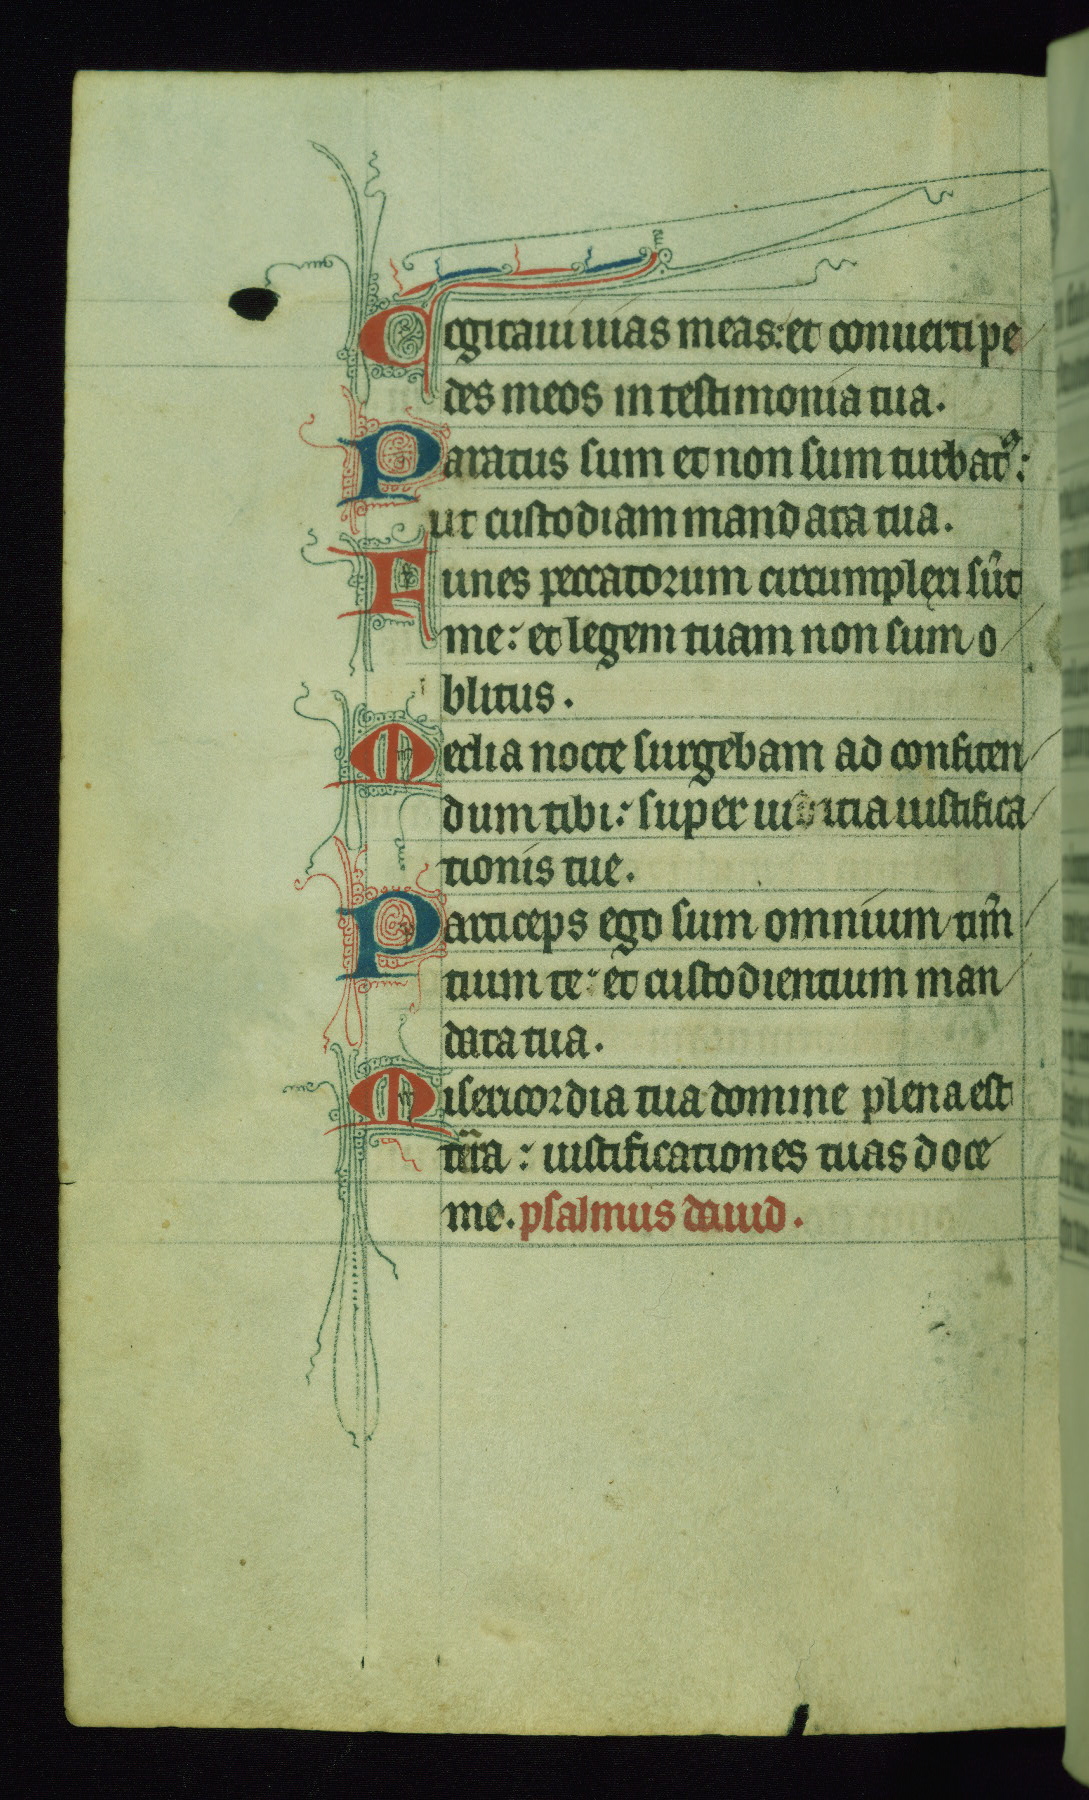 Cogitaui uias meas: et conuerti pe
des meos in testimonia tua.
Paratus sum et non sum turbatꝰ:
ut custodiam mandata tua.
Funes peccatorum circumplexi sūt
me: et legem tuam non sum o
blitus.
Media nocte surgebam ad confiten
dum tibi: super iudicia iustifica
tionis tue.
Particeps ego sum omnium tim̄
tium te: et custodientium man
data tua.
Misericordia tua domine plena est
t̄ra: iustificationes tuas doce
me. psalmus dauid.